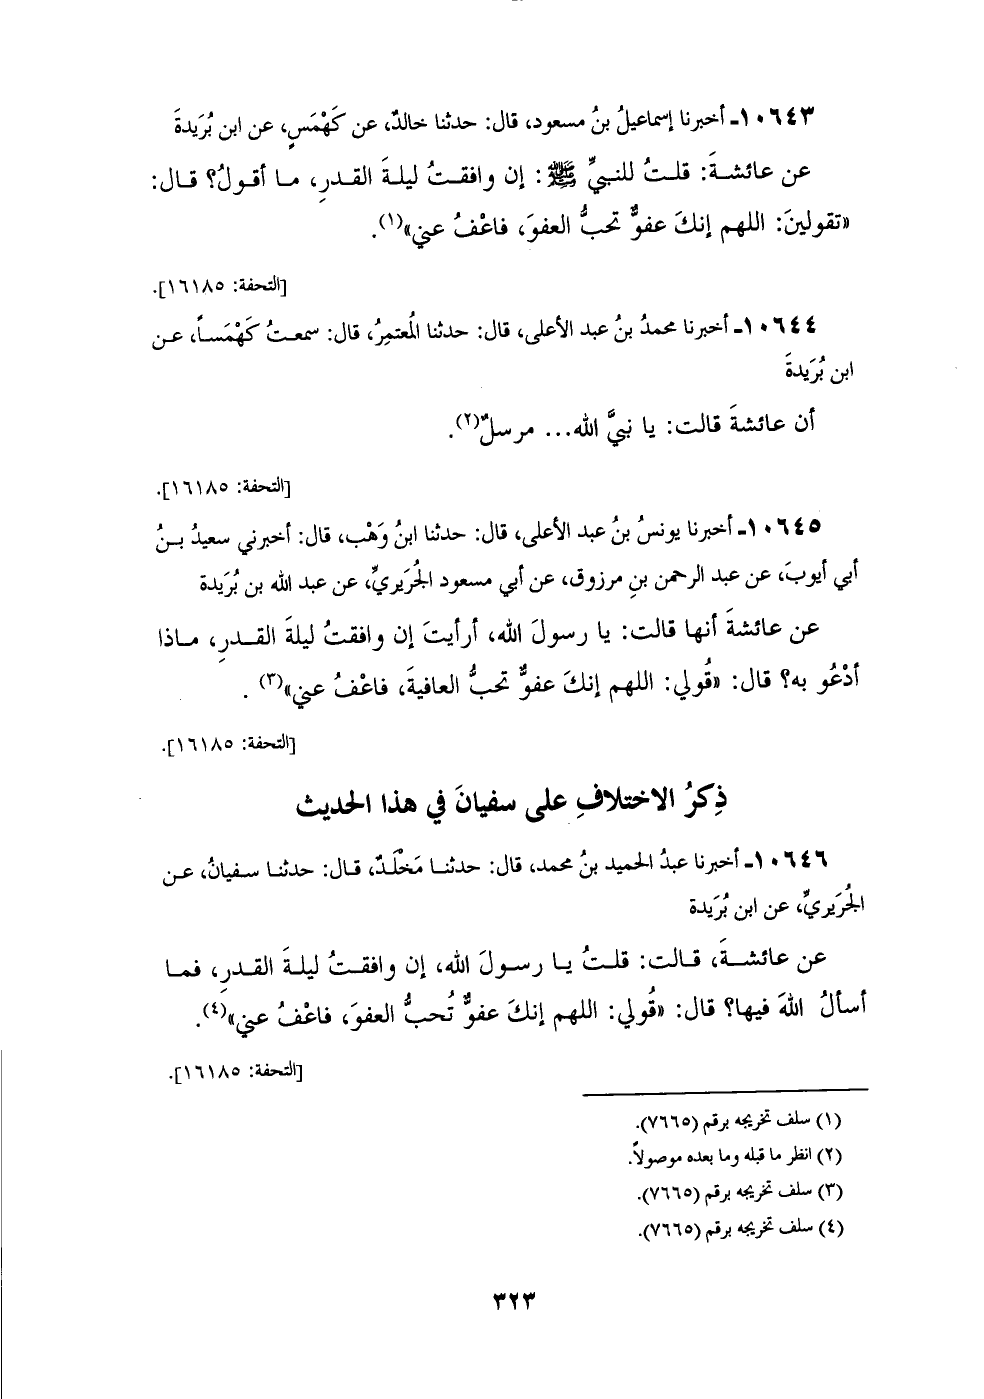 ١٠٦٤٣ـ أخبرنا إسماعيلُ بنُ مسعود، قال: حدثنا خالدٌ، عن كَهْمَسٍ، عن ابن بُرَيدةَ
عن عائشـةَ: قلـتُ للنبيِّ ﷺ: إن وافقـتُ ليلةَ القـدرِ، مـا أقـولُ؟ قـال:
«تقولينَ: اللهم إنكَ عفوٌّ تحبُّ العفوَ، فاعْفُ عني»(١).
[التحفة: ١٦١٨٥].
١٠٦٤٤ـ أخبرنا محمدُ بنُ عبد الأعلى، قال: حدثنا المُعتمِرُ، قال: سمعـتُ كَهْمَسـاً، عـن
ابن بُرَيدةَ
أن عائشةَ قالت: يا نبيَّ الله... مرسلٌ(٢).
[التحفة: ١٦١٨٥].
١٠٦٤٥ـ أخبرنا يونسُ بنُ عبد الأعلى، قال: حدثنا ابنُ وَهْب، قال: أخبرني سعيدُ بـنُ
أبي أيوبَ، عن عبد الرحمن بنِ مرزوق، عن أبي مسعود الجُرَيريِّ، عن عبد الله بن بُرَيدة
عن عائشةَ أنها قالت: يا رسولَ الله، أرأيتَ إن وافقتُ ليلةَ القـدرِ، مـاذا
أدْعُو به؟ قال: «قُولي: اللهم إنكَ عفوٌّ تحبُّ العافيةَ، فاعْفُ عني»(٣) .
[التحفة: ١٦١٨٥].
ذِكرُ الاختلافِ على سفيانَ في هذا الحديث
١٠٦٤٦ـ أخبرنا عبدُ الحميد بنُ محمد، قال: حدثنـا مَخْلَـدٌ، قـال: حدثنـا سـفيانُ، عـن
الجُرَيريِّ، عن ابن بُرَيدة
عن عائشــةَ، قـالت: قلـتُ يـا رسـولَ الله، إن وافقـتُ ليلـةَ القـدرِ، فمـا
أسألُ اللهَ فيها؟ قال: «قُولي: اللهم إنكَ عفوٌّ تُحبُّ العفوَ، فاعْفُ عني»(٤).
[التحفة: ١٦١٨٥].
(١) سلف تخريجه برقم (٧٦٦٥).
(٢) انظر ما قبله وما بعده موصولاً.
(٣) سلف تخريجه برقم (٧٦٦٥).
(٤) سلف تخريجه برقم (٧٦٦٥).
٣٢٣